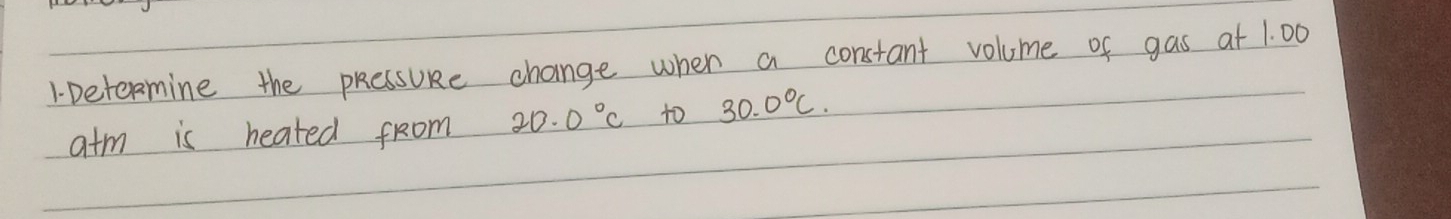 1. Determine the pressure change when a constant volume of gas at 1.00
atm is heated from 20.0°C to 30.0°C.